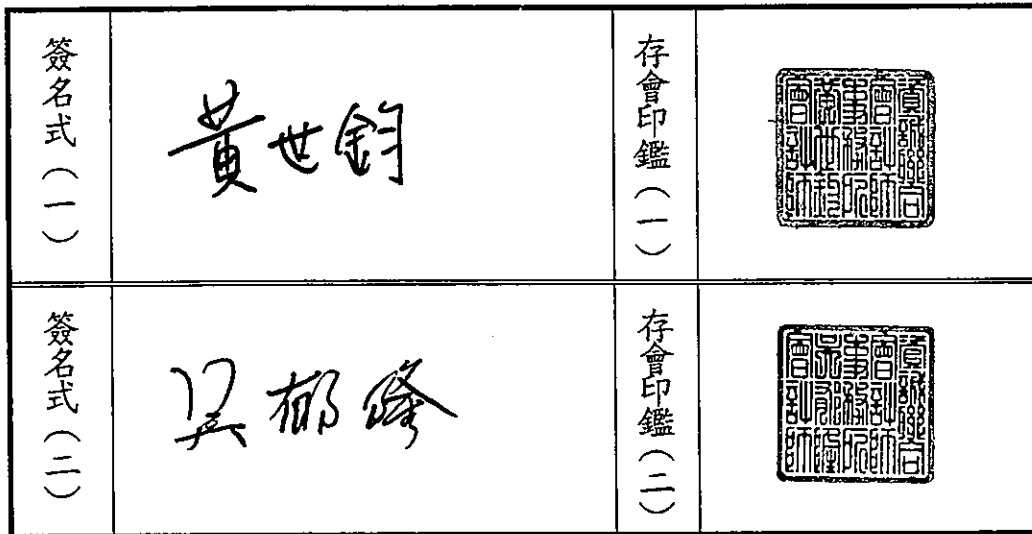 簽名式（一）
黃世鈞
存會印鑑（一）
資誠聯合
會計師
事務所
黃世鈞
會計師
簽名式（二）
吳郁隆
存會印鑑（二）
資誠聯合
會計師
事務所
吳郁隆
會計師